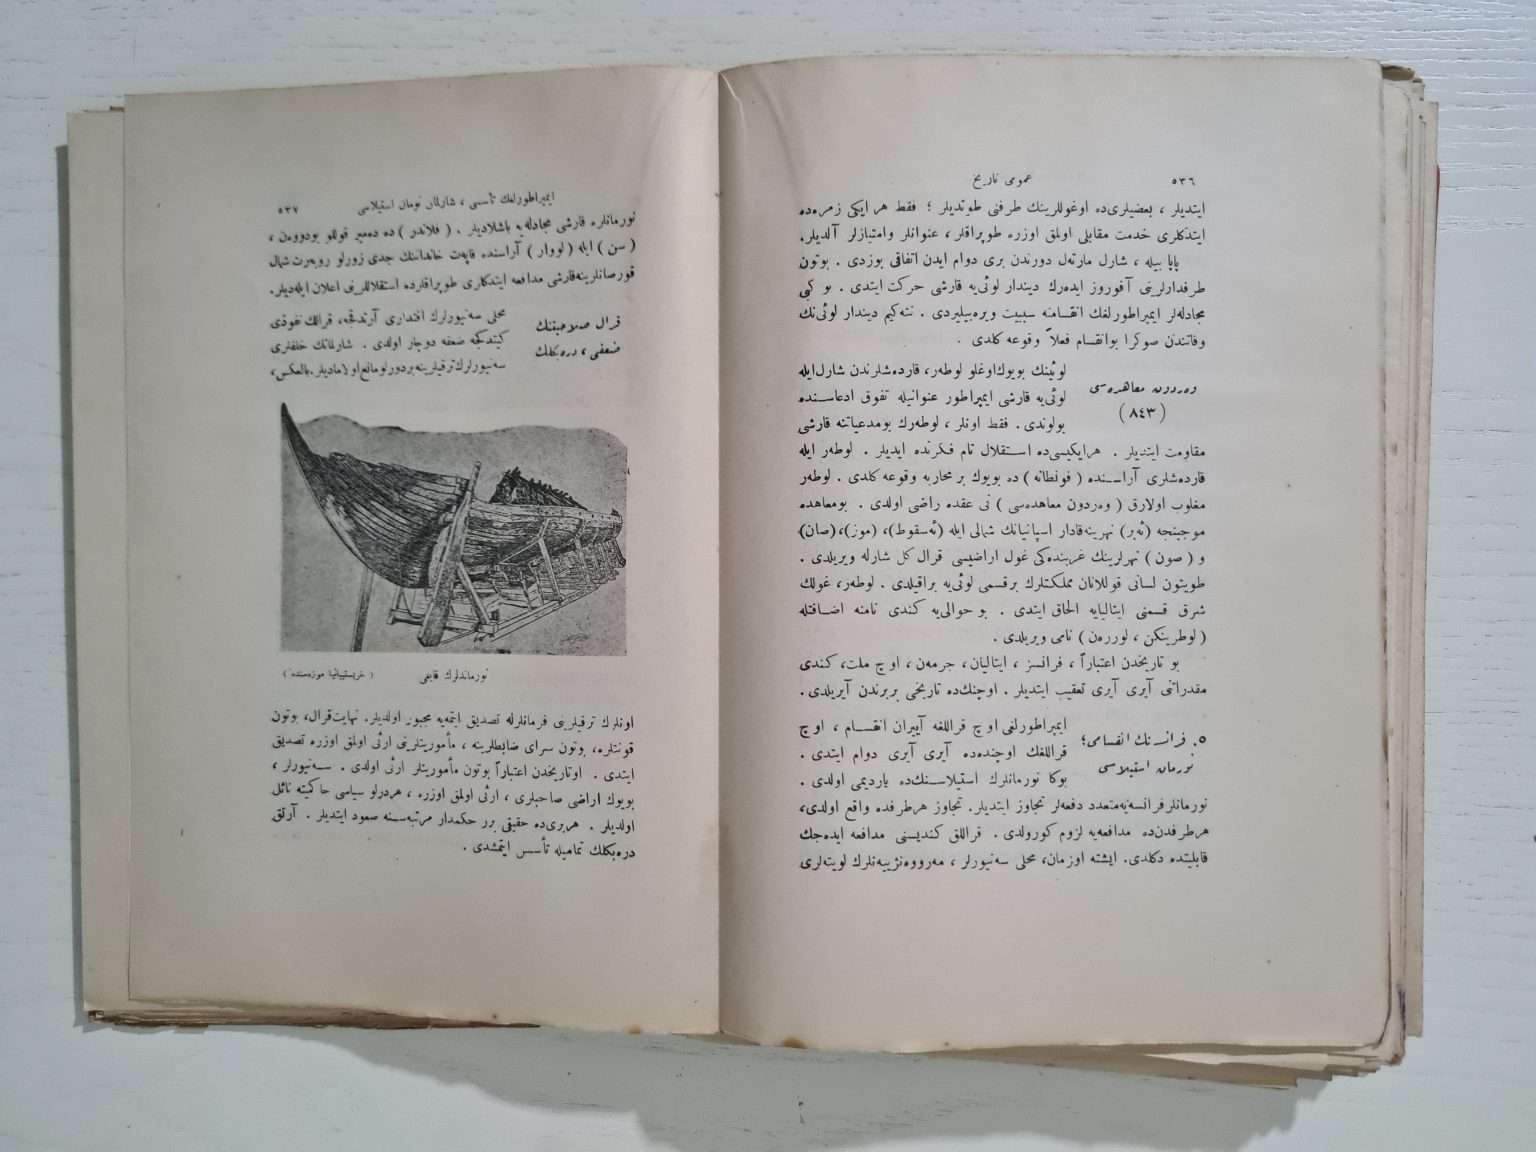 ٥٣٦
عمومى تاريخ
ايتديلر ، بعضيلرى‌ده اوغوللرينك طرفنى طوتديلر ؛ فقط هر ايكى زمره‌ده
ايتدكلرى خدمت مقابلى اولمق اوزره طوپراقلر ، عنوانلر وامتيازلر آلديلر.
پاپا بيله ، شارل مارته‌ل دورندن برى دوام ايدن اتفاقى بوزدى . بوتون
طرفدارلرينى آفوروز ايده‌رك ديندار لوئى‌يه قارشى حركت ايتدى . بو كبى
مجادله‌لر ايمپراطورلغك انقسامنه سببيت ويره‌بيليردى . نته‌كيم ديندار لوئى‌نك
وفاتندن صوكرا بوانقسام فعلاً وقوعه كلدى .
وه‌ردون معاهده‌سى
( ٨٤٣ )
لوئينك بويوك‌اوغلو لوطه‌ر، قارده‌شلرندن شارل‌ايله
لوئى‌يه قارشى ايمپراطور عنوانيله تفوق ادعاسنده
بولوندى . فقط اونلر ، لوطه‌رك بومدعياتنه قارشى
مقاومت ايتديلر . هرايكيسى‌ده استقلال تام فكرنده ايديلر . لوطه‌ر ايله
قارده‌شلرى آراسنده ( فونطانه ) ده بويوك بر محاربه وقوعه كلدى . لوطه‌ر
مغلوب اولارق ( وه‌ردون معاهده‌سى ) نى عقده راضى اولدى . بومعاهده
موجبنجه (ئه‌بر) نهرينه‌قادار اسپانيانك شمالى ايله (ئه‌سقوط)، (موز)،(صان)
و ( صون ) نهرلرينك غربنده‌كى غول اراضيسى قرال كل شارله ويريلدى .
طويتون لسانى قوللانان مملكتلرك برقسمى لوئى‌يه براقيلدى . لوطه‌ر، غولك
شرق قسمنى ايتاليايه الحاق ايتدى . بو حوالى‌يه كندى نامنه اضافتله
( لوطرينكن ، لوره‌ن ) نامى ويريلدى .
بو تاريخدن اعتباراً ، فرانسز ، ايتاليان، جرمه‌ن ، اوچ ملت، كندى
مقدراتنى آيرى آيرى تعقيب ايتديلر . اوچنك‌ده تاريخى بربرندن آيريلدى .
٥. فرانسه‌نك انقسامى ؛
نورمان استيلاسى
ايمپراطورلغى اوچ قراللغه آييران انقسام ، اوچ
قراللغك اوچنده‌ده آيرى آيرى دوام ايتدى .
بوكا نورمانلرك استيلاسنك‌ده يارديمى اولدى .
نورمانلرفرانسه‌يه‌متعدد دفعه‌لر تجاوز ايتديلر . تجاوز هرطرفده واقع اولدى،
هرطرفدن‌ده مدافعه‌يه لزوم كورولدى . قراللق كنديسنى مدافعه ايده‌جك
قابليتده دكلدى. ايشته اوزمان، محلى سه‌نيورلر ، مه‌رووه‌نژييه‌نلرك لويته‌لرى
ايمپراطورلغك تأسسى ، شارلمان نورمان استيلاسى
٥٣٧
نورمانلره قارشى مجادله‌يه باشلاديلر . ( فلاندر ) ده ده‌مير قوللو بودووه‌ن ،
( سن ) ايله ( لووار ) آراسنده قاپه‌ت خانداننك جدى زورلو روبه‌رت شمال
قورصانلرينه‌قارشى مدافعه ايتدكلرى طوپراقلرده استقلاللرينى اعلان ايله‌ديلر.
قرال صلاحيتنك
ضعفى ، دره‌بكلك
محلى سه‌نيورلرك اقتدارى آرتدقجه، قرالك نفوذى
كيتدكجه ضعفه دوچار اولدى . شارلمانك خلفلرى
سه‌نيورلرك‌ترقيلرينه‌بردورلومانع‌اولاماديلر.بالعكس،
نورماندلرك قايغى ( خريستيانيا موزه‌سنده )
اونلرك ترقيلرينى فرمانلرله تصديق ايتمه‌يه مجبور اولديلر. نهايت‌قرال، بوتون
قونتلره، بوتون سراى ضابطلرينه ، مأموريتلرينى ارثى اولمق اوزره تصديق
ايتدى . اوتاريخدن اعتباراً بوتون مأموريتلر ارثى اولدى . سه‌نيورلر ،
بويوك اراضى صاحبلرى ، ارثى اولمق اوزره ، هردرلو سياسى حاكميته نائل
اولديلر . هربرى‌ده حقيقى برر حكمدار مرتبه‌سنه صعود ايتديلر . آرتق
دره‌بكلك تماميله تأسس ايتمشدى .